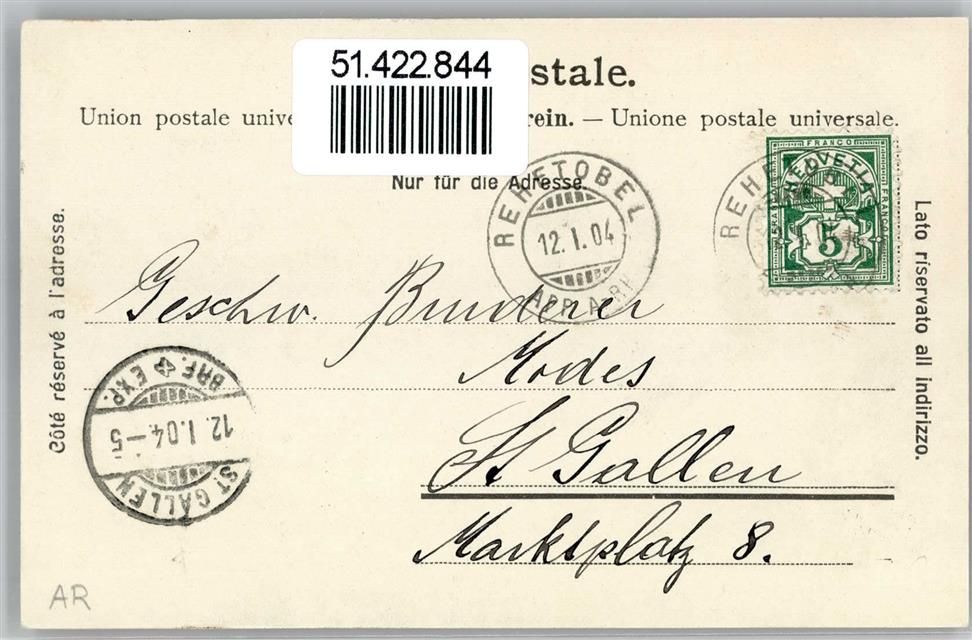 51.422.844
stale.
Union postale unive rein. — Unione postale universale.
Nur für die Adresse.
REHETOBEL
12.I.04
APP. A. RH.
REHE
FRANCO
HELVETIA
FRANCO
FRANCO
5
Côté réservé à l'adresse.
Lato riservato all indirizzo.
Geschw.
Modes
St Gallen
Marktplatz 8.
ST. GALLEN
12.I.04.-5
BRF. EXP.
AR